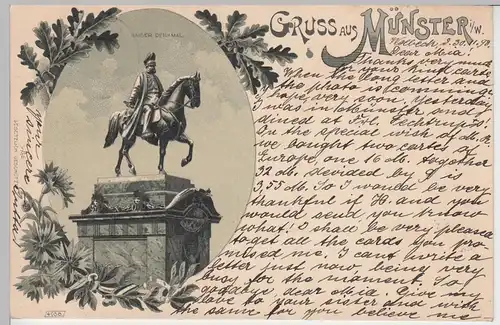 KAISER DENKMAL.
GRUSS AUS MÜNSTER i/W.
d. 20. 11. 98
Dear Mia!
Thanks very much
for your kind carte
the long letter and
the photo is comming
I hope very soon. Yesterday
I was in Münster and
dined at Frl.
In the special wish of
we bought two cartes of
Europe, one 16 db. together
32 db. divided by
3,55 db. So I would be very
thankful if H. and you
would send you know
what! I shall be very pleased
to get all the cards you pro-
missed me. I cant write a
better just now being very
busy for the moment. So
goodbye dear Mia. Give my
love to your sister and with
the same for you believe me
GESETZLICH GESCHÜTZT
4956